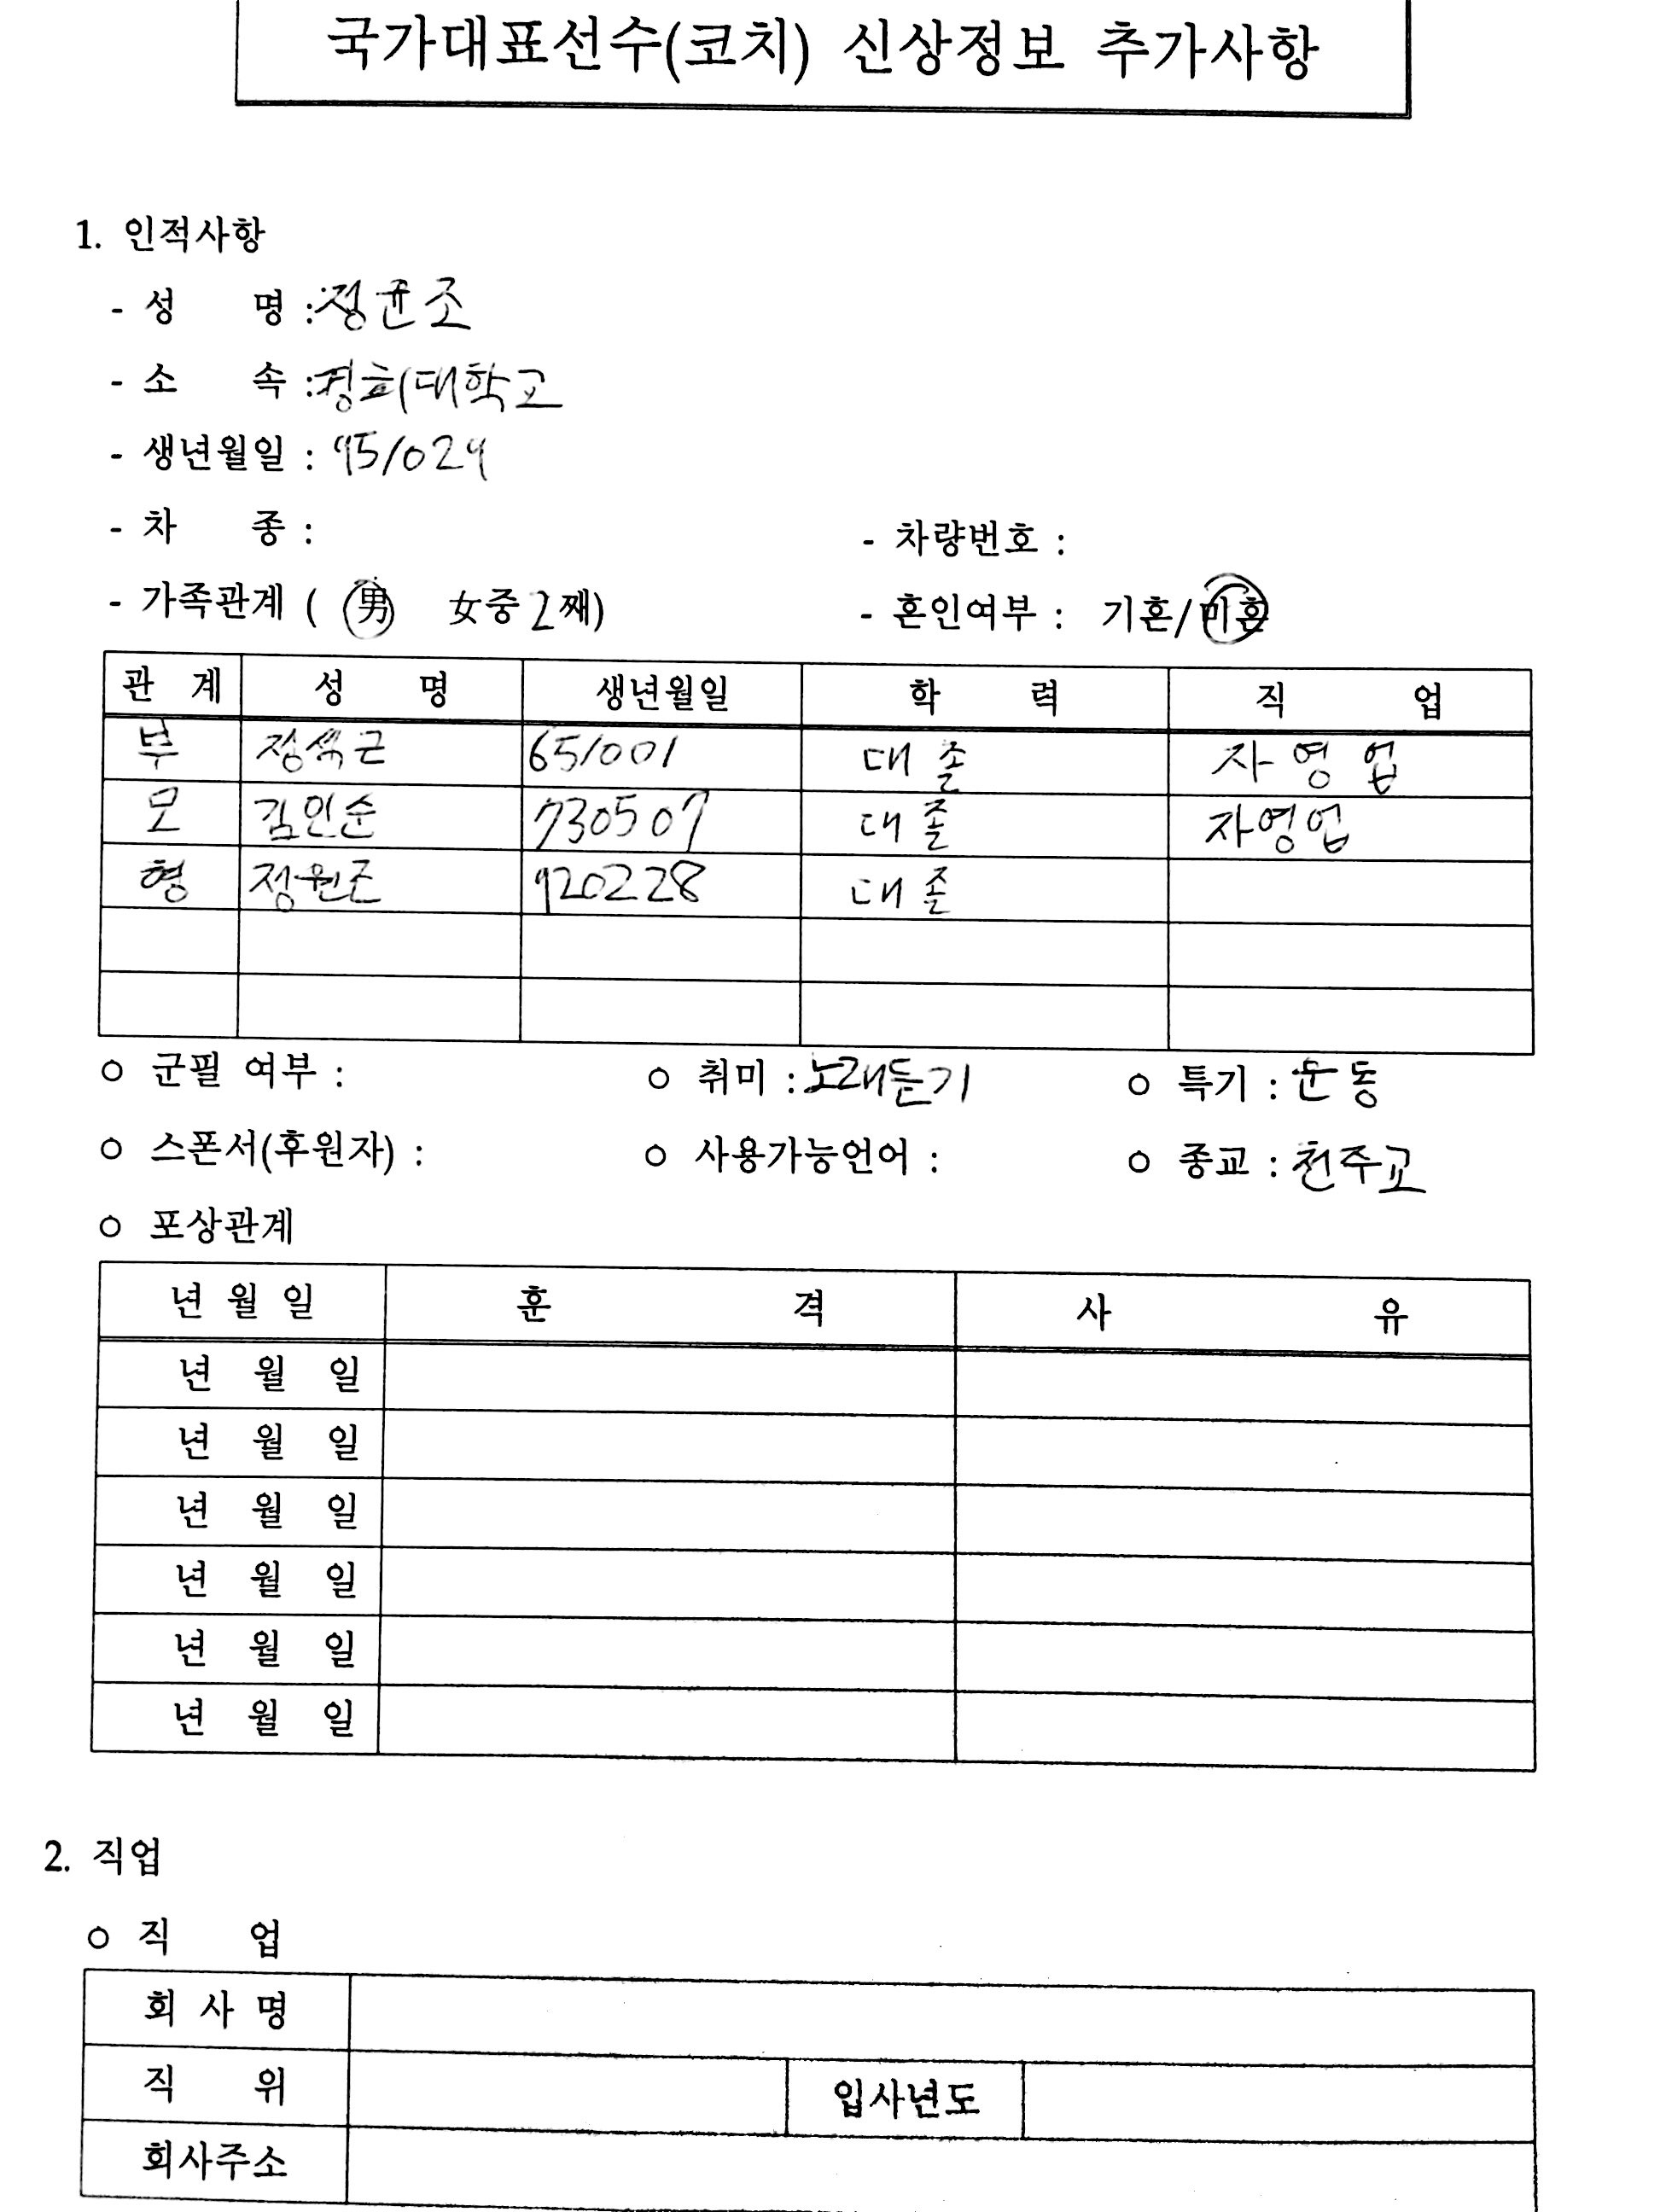 국가대표선수(코치) 신상정보 추가사항
1. 인적사항
- 성 명 : 정윤조
- 소 속 : 경희대학교
- 생년월일 : 951029
- 차 종 : - 차량번호 :
- 가족관계 ( 男 女중 2째) - 혼인여부 : 기혼/미혼
관 계 성 명 생년월일 학 력 직 업
부 정석근 651001 대졸 자영업
모 김인순 730507 대졸 자영업
형 정원조 920228 대졸
○ 군필 여부 : ○ 취미 : 노래듣기 ○ 특기 : 운동
○ 스폰서(후원자) : ○ 사용가능언어 : ○ 종교 : 천주교
○ 포상관계
년 월 일 훈 격 사 유
년 월 일
년 월 일
년 월 일
년 월 일
년 월 일
년 월 일
2. 직업
○ 직 업
회 사 명
직 위 입사년도
회사주소